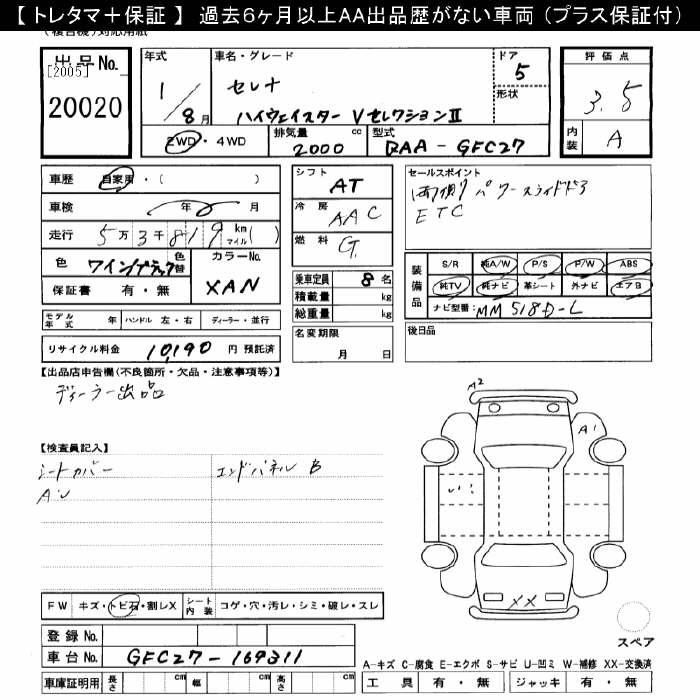 【 トレタマ＋保証 】 過去６ヶ月以上ＡＡ出品歴がない車両（プラス保証付）
出品No.
[2005]
20020
年式 1/8月
車名・グレード
セレナ
ハイウェイスター VセレクションII
ドア 5
形状
評価点
3.5
内装 A
2WD・4WD
排気量 2000 cc
型式 DAA-GFC27
車歴 自家用・( )
車検 年 月
走行 5万3千819 km マイル( )
色 ワインブラック 色替
カラーNo. XAN
保証書 有・無
モデル年式 年 ハンドル 左・右 ディーラー・並行
リサイクル料金 10,190 円 預託済
シフト AT
冷房 AAC
燃料 G.
乗車定員 8 名
積載量 kg
総重量 kg
名変期限
月 日
セールスポイント
両側パワースライドドア
ETC
装備品
S/R 純A/W P/S P/W ABS
純TV 純ナビ 革シート 外ナビ エアB
ナビ型番: MM518D-L
後日品
【出品店申告欄(不良箇所・欠品・注意事項等)】
ディーラー出品
【検査員記入】
シートカバー
エンドパネル B
A・U
A2
A1
XX
FW キズ・トビ石・割レX シート内装 コゲ・穴・汚レ・シミ・破レ・スレ
登録 No.
車台 No. GFC27-169311
車庫証明用 長さ cm 幅 cm 高さ cm
スペア
A-キズ C-腐食 E-エクボ S-サビ U-凹ミ W-補修 XX-交換済
工具 有・無 ジャッキ 有・無